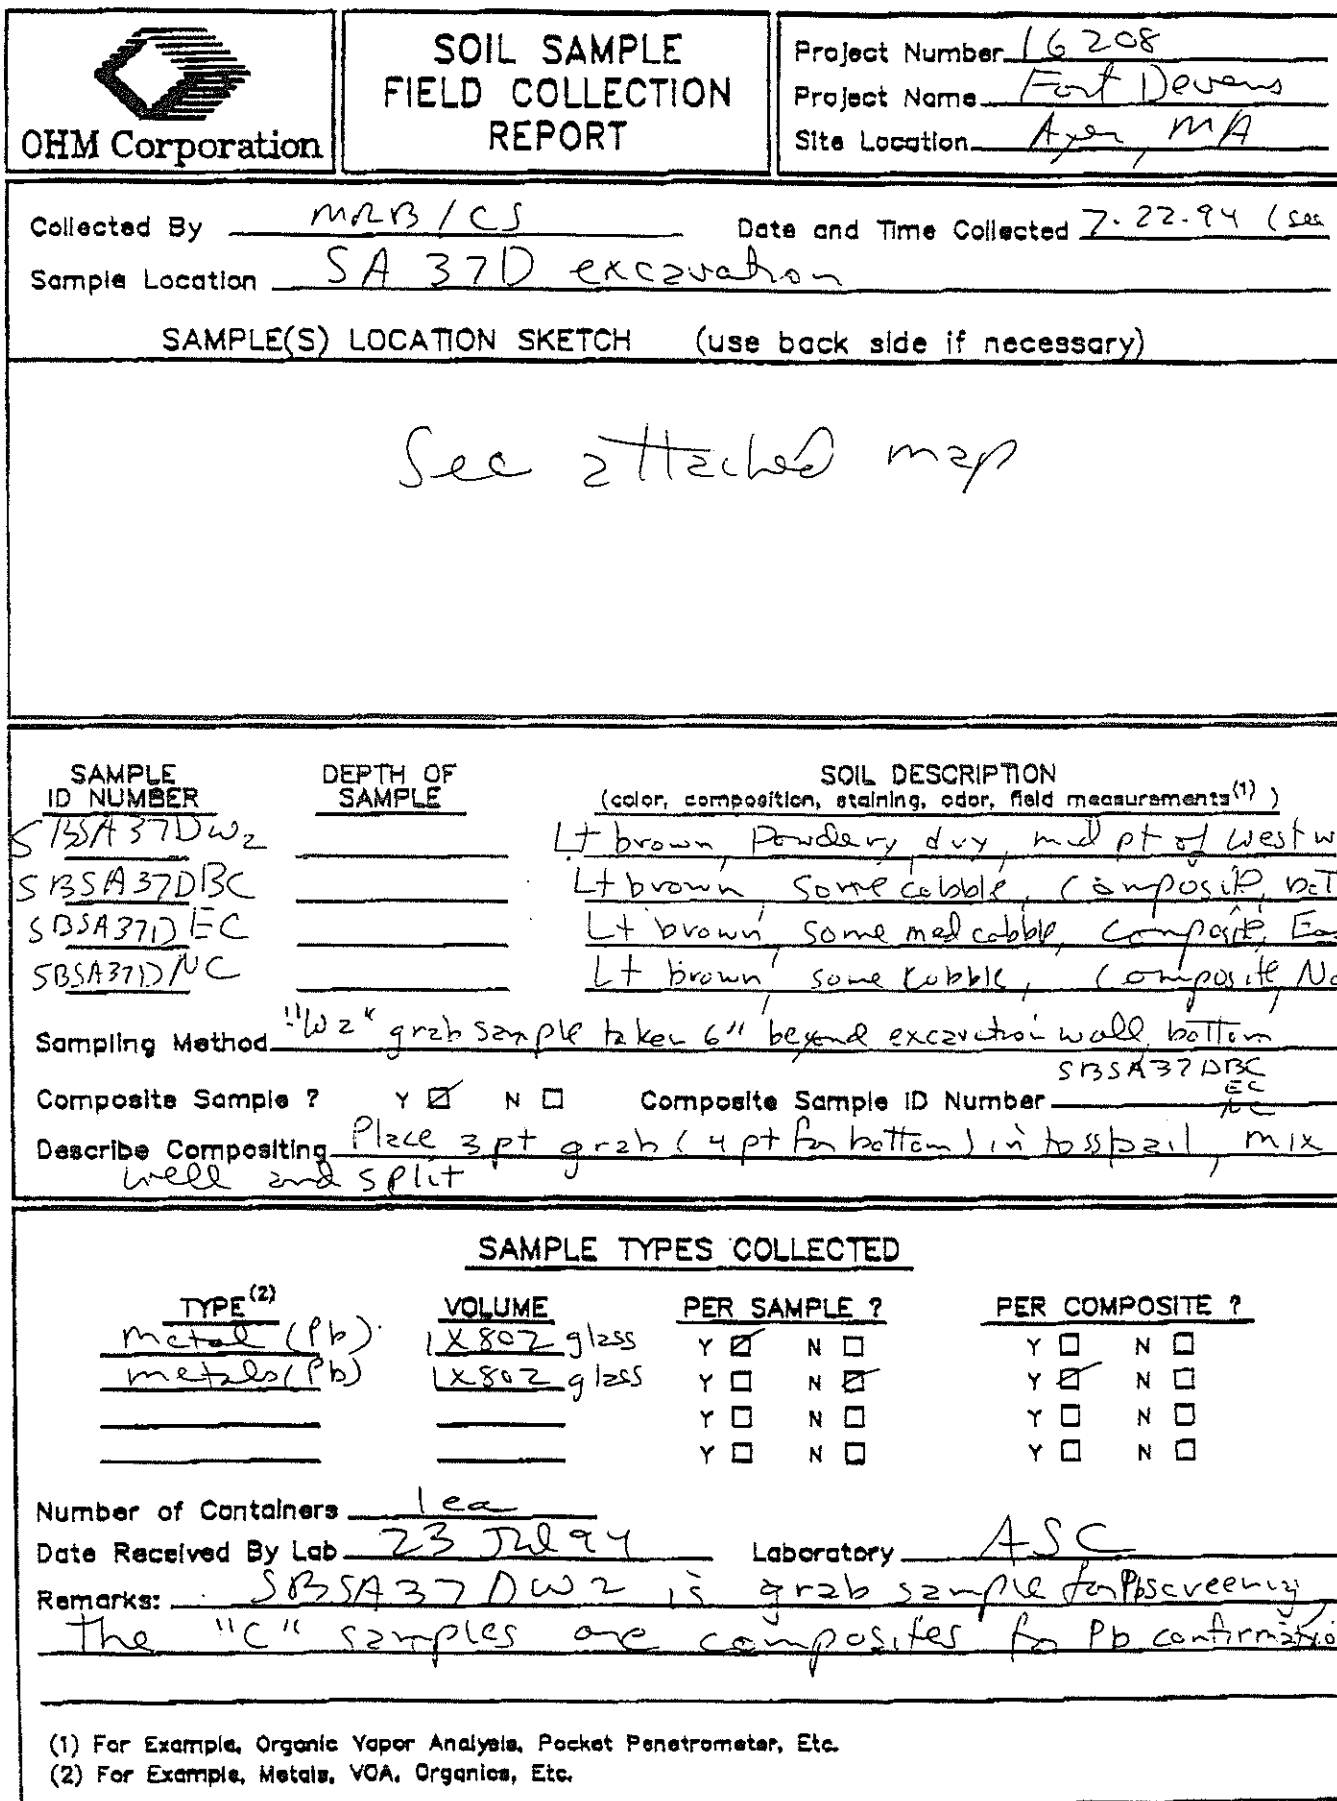 OHM Corporation
SOIL SAMPLE
FIELD COLLECTION
REPORT
Project Number 16208
Project Name Fort Devens
Site Location Ayer, MA
Collected By MRB / CS Date and Time Collected 7-22-94 (see
Sample Location SA 37D excavation
SAMPLE(S) LOCATION SKETCH (use back side if necessary)
See attached map
SAMPLE ID NUMBER DEPTH OF SAMPLE SOIL DESCRIPTION
(color, composition, staining, odor, field measurements(1) )
SBSA37DW2 Lt brown, Powdery, dry, mid pt of West w
SBSA37DBC Lt brown, some cobble, composite, bot
SBSA37DEC Lt brown, some med cobble, composite, Eas
SBSA37DNC Lt brown, some cobble, composite, No
Sampling Method "W2" grab sample taken 6" beyond excavation wall bottom
SBSA37DBC
Composite Sample ? Y ☑ N ☐ Composite Sample ID Number EC
NC
Describe Compositing Place 3pt grab (4pt for bottom) in pail, mix
well and split
SAMPLE TYPES COLLECTED
TYPE(2) VOLUME PER SAMPLE ? PER COMPOSITE ?
metal (Pb) 1x8oz glass Y ☑ N ☐ Y ☐ N ☐
metals (Pb) 1x8oz glass Y ☐ N ☑ Y ☑ N ☐
Y ☐ N ☐ Y ☐ N ☐
Y ☐ N ☐ Y ☐ N ☐
Number of Containers 1 ea
Date Received By Lab 23 Jul 94 Laboratory ASC
Remarks: SBSA37DW2 is grab sample for Pb screening,
The "C" samples are composites for Pb confirmatio
(1) For Example, Organic Vapor Analysis, Pocket Penetrometer, Etc.
(2) For Example, Metals, VOA, Organics, Etc.